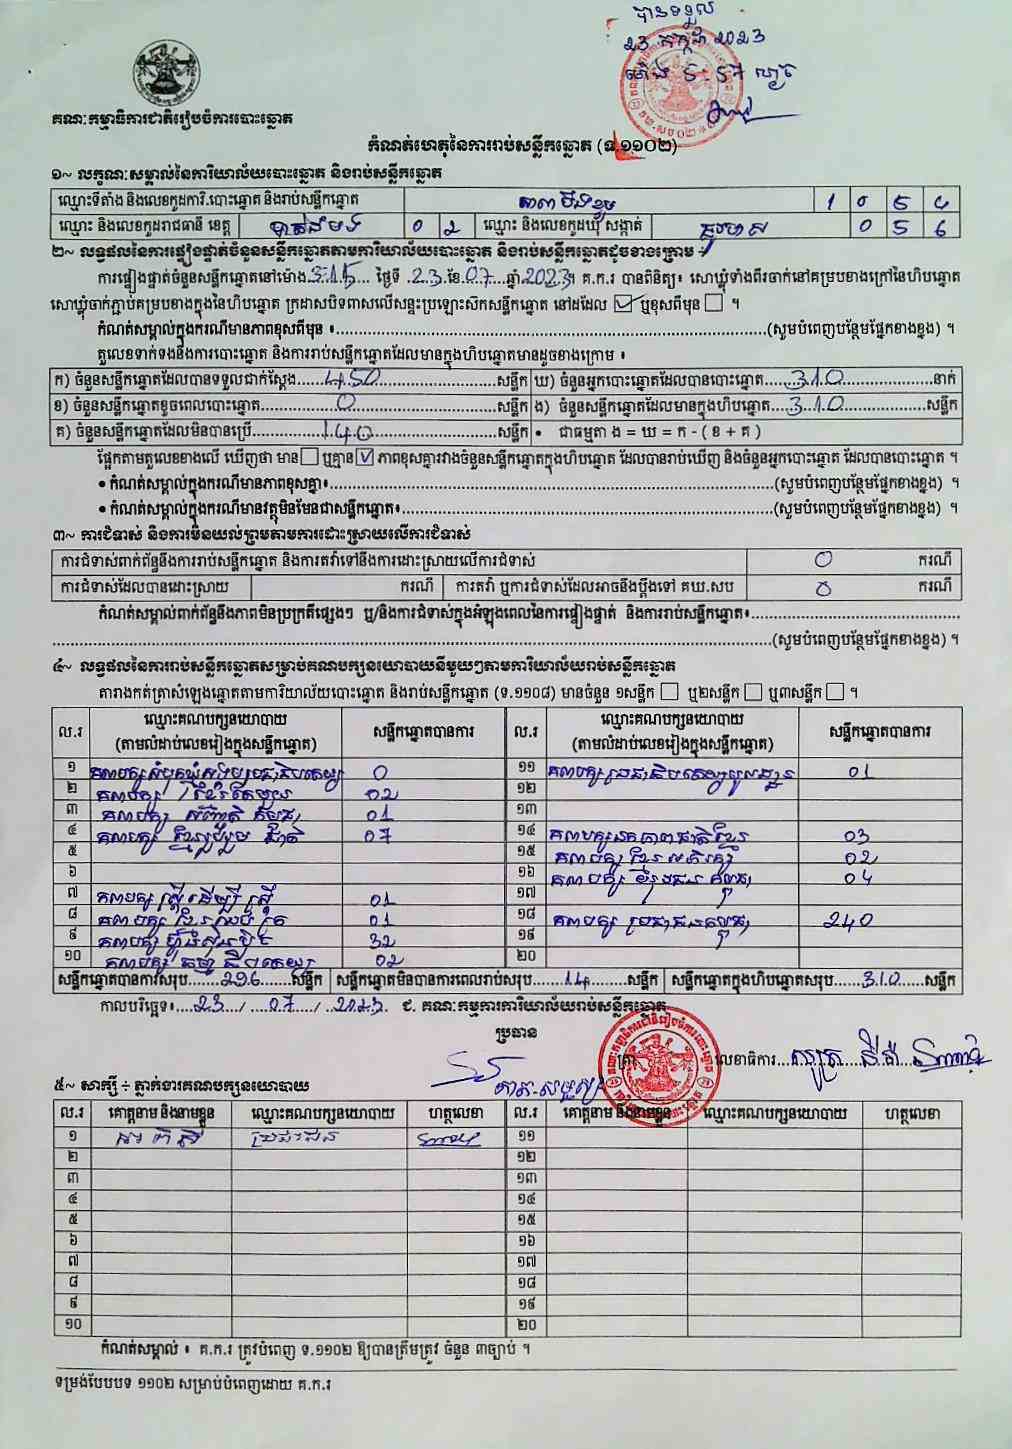 បានទទួល
23 កក្កដា 2023
ម៉ោង 5:57 ល្ងាច
គណៈកម្មាធិការជាតិរៀបចំការបោះឆ្នោត
កំណត់ហេតុនៃការរាប់សន្លឹកឆ្នោត (ទ.១១០២)
១~ លក្ខណៈសម្គាល់នៃការិយាល័យបោះឆ្នោត និងរាប់សន្លឹកឆ្នោត
ឈ្មោះទីតាំង និងលេខកូដការិ.បោះឆ្នោត និងរាប់សន្លឹកឆ្នោត 1 0 5 4
ឈ្មោះ និងលេខកូដរាជធានី ខេត្ត បាត់ដំបង 0 2 ឈ្មោះ និងលេខកូដឃុំ សង្កាត់ 0 5 6
២~ លទ្ធផលនៃការផ្ទៀងផ្ទាត់ចំនួនសន្លឹកឆ្នោតតាមការិយាល័យបោះឆ្នោត និងរាប់សន្លឹកឆ្នោតដូចខាងក្រោម ÷
ការផ្ទៀងផ្ទាត់ចំនួនសន្លឹកឆ្នោតនៅម៉ោង 3:15 ថ្ងៃទី 23 ខែ 07 ឆ្នាំ 2023 ។ គ.ក.រ បានពិនិត្យ៖ សោឃ្លុំទាំងពីរចាក់នៅគម្របខាងក្រៅនៃហិបឆ្នោត
សោឃ្លុំចាក់ភ្ជាប់គម្របខាងក្នុងនៃហិបឆ្នោត ក្រដាសបិទពាសលើសន្ទះប្រឡោះសិកសន្លឹកឆ្នោត នៅដដែល ☑ ឬខុសពីមុន ☐ ។
កំណត់សម្គាល់ក្នុងករណីមានភាពខុសពីមុន ៖ (សូមបំពេញបន្ថែមផ្នែកខាងខ្នង) ។
តួលេខទាក់ទងនឹងការបោះឆ្នោត និងការរាប់សន្លឹកឆ្នោតដែលមានក្នុងហិបឆ្នោតមានដូចខាងក្រោម ៖
ក) ចំនួនសន្លឹកឆ្នោតដែលបានទទួលជាក់ស្តែង 450 សន្លឹក ឃ) ចំនួនអ្នកបោះឆ្នោតដែលបានបោះឆ្នោត 310 នាក់
ខ) ចំនួនសន្លឹកឆ្នោតខូចពេលបោះឆ្នោត 0 សន្លឹក ង) ចំនួនសន្លឹកឆ្នោតដែលមានក្នុងហិបឆ្នោត 310 សន្លឹក
គ) ចំនួនសន្លឹកឆ្នោតដែលមិនបានប្រើ 140 សន្លឹក • ជាធម្មតា ង = ឃ = ក - ( ខ + គ )
ផ្អែកតាមតួលេខខាងលើ ឃើញថា មាន ☐ ឬគ្មាន ☑ ភាពខុសគ្នារវាងចំនួនសន្លឹកឆ្នោតក្នុងហិបឆ្នោត ដែលបានរាប់ឃើញ និងចំនួនអ្នកបោះឆ្នោត ដែលបានបោះឆ្នោត ។
• កំណត់សម្គាល់ក្នុងករណីមានភាពខុសគ្នា៖ (សូមបំពេញបន្ថែមផ្នែកខាងខ្នង) ។
• កំណត់សម្គាល់ក្នុងករណីមានវត្ថុមិនមែនជាសន្លឹកឆ្នោត៖ (សូមបំពេញបន្ថែមផ្នែកខាងខ្នង) ។
៣~ ការជំទាស់ និងការមិនយល់ព្រមតាមការដោះស្រាយលើការជំទាស់
ការជំទាស់ពាក់ព័ន្ធនឹងការរាប់សន្លឹកឆ្នោត និងការតវ៉ាទៅនឹងការដោះស្រាយលើការជំទាស់ 0 ករណី
ការជំទាស់ដែលបានដោះស្រាយ ករណី ការតវ៉ា ឬការជំទាស់ដែលអាចនឹងប្តឹងទៅ គឃ.សប 0 ករណី
កំណត់សម្គាល់ពាក់ព័ន្ធនឹងភាពមិនប្រក្រតីផ្សេងៗ ឬ/និងការជំទាស់ក្នុងអំឡុងពេលនៃការផ្ទៀងផ្ទាត់ និងការរាប់សន្លឹកឆ្នោត៖
(សូមបំពេញបន្ថែមផ្នែកខាងខ្នង) ។
៤~ លទ្ធផលនៃការរាប់សន្លឹកឆ្នោតសម្រាប់គណបក្សនយោបាយនីមួយៗតាមការិយាល័យរាប់សន្លឹកឆ្នោត
តារាងកត់ត្រាសំឡេងឆ្នោតតាមការិយាល័យបោះឆ្នោត និងរាប់សន្លឹកឆ្នោត (ទ.១១០៨) មានចំនួន ១សន្លឹក ☐ ឬ២សន្លឹក ☐ ឬ៣សន្លឹក ☐ ។
ល.រ ឈ្មោះគណបក្សនយោបាយ (តាមលំដាប់លេខរៀងក្នុងសន្លឹកឆ្នោត) សន្លឹកឆ្នោតបានការ ល.រ ឈ្មោះគណបក្សនយោបាយ (តាមលំដាប់លេខរៀងក្នុងសន្លឹកឆ្នោត) សន្លឹកឆ្នោតបានការ
១ គណបក្ស សំបុកឃ្មុំសង្គមប្រជាធិបតេយ្យ 0 ១១ គណបក្ស ប្រជាធិបតេយ្យមូលដ្ឋាន 01
២ គណបក្ស ខ្មែរតែមួយ 02 ១២
៣ គណបក្ស សញ្ជាតិ កម្ពុជា 01 ១៣
៤ គណបក្ស ខ្មែររួបរួម ជាតិ 07 ១៤ គណបក្ស ឯកភាពជាតិខ្មែរ 03
៥ ១៥ គណបក្ស ខ្មែរ អភិរក្ស 02
៦ ១៦ គណបក្ស យុវជន កម្ពុជា 04
៧ គណបក្ស ស្ត្រី ដើម្បី ស្ត្រី 01 ១៧
៨ គណបក្ស ខ្មែរ ឈប់ ក្រ 01 ១៨ គណបក្ស ប្រជាជនកម្ពុជា 240
៩ គណបក្ស ហ៊្វុនស៊ិនប៉ិច 32 ១៩
១០ គណបក្ស ធម្មាធិបតេយ្យ 02 ២០
សន្លឹកឆ្នោតបានការសរុប 296 សន្លឹក សន្លឹកឆ្នោតមិនបានការពេលរាប់សរុប 14 សន្លឹក សន្លឹកឆ្នោតក្នុងហិបឆ្នោតសរុប 310 សន្លឹក
កាលបរិច្ឆេទ៖ 23 / 07 / 2023 ជ. គណៈកម្មការការិយាល័យរាប់សន្លឹកឆ្នោត
ប្រធាន
លេខាធិការ
៥~ សាក្សី ÷ ភ្នាក់ងារគណបក្សនយោបាយ
ល.រ គោត្តនាម និងនាមខ្លួន ឈ្មោះគណបក្សនយោបាយ ហត្ថលេខា ល.រ គោត្តនាម និងនាមខ្លួន ឈ្មោះគណបក្សនយោបាយ ហត្ថលេខា
១ ប្រជាជន ១១
២ ១២
៣ ១៣
៤ ១៤
៥ ១៥
៦ ១៦
៧ ១៧
៨ ១៨
៩ ១៩
១០ ២០
កំណត់សម្គាល់ ៖ គ.ក.រ ត្រូវបំពេញ ទ.១១០២ ឱ្យបានត្រឹមត្រូវ ចំនួន ៣ច្បាប់ ។
ទម្រង់បែបបទ ១១០២ សម្រាប់បំពេញដោយ គ.ក.រ